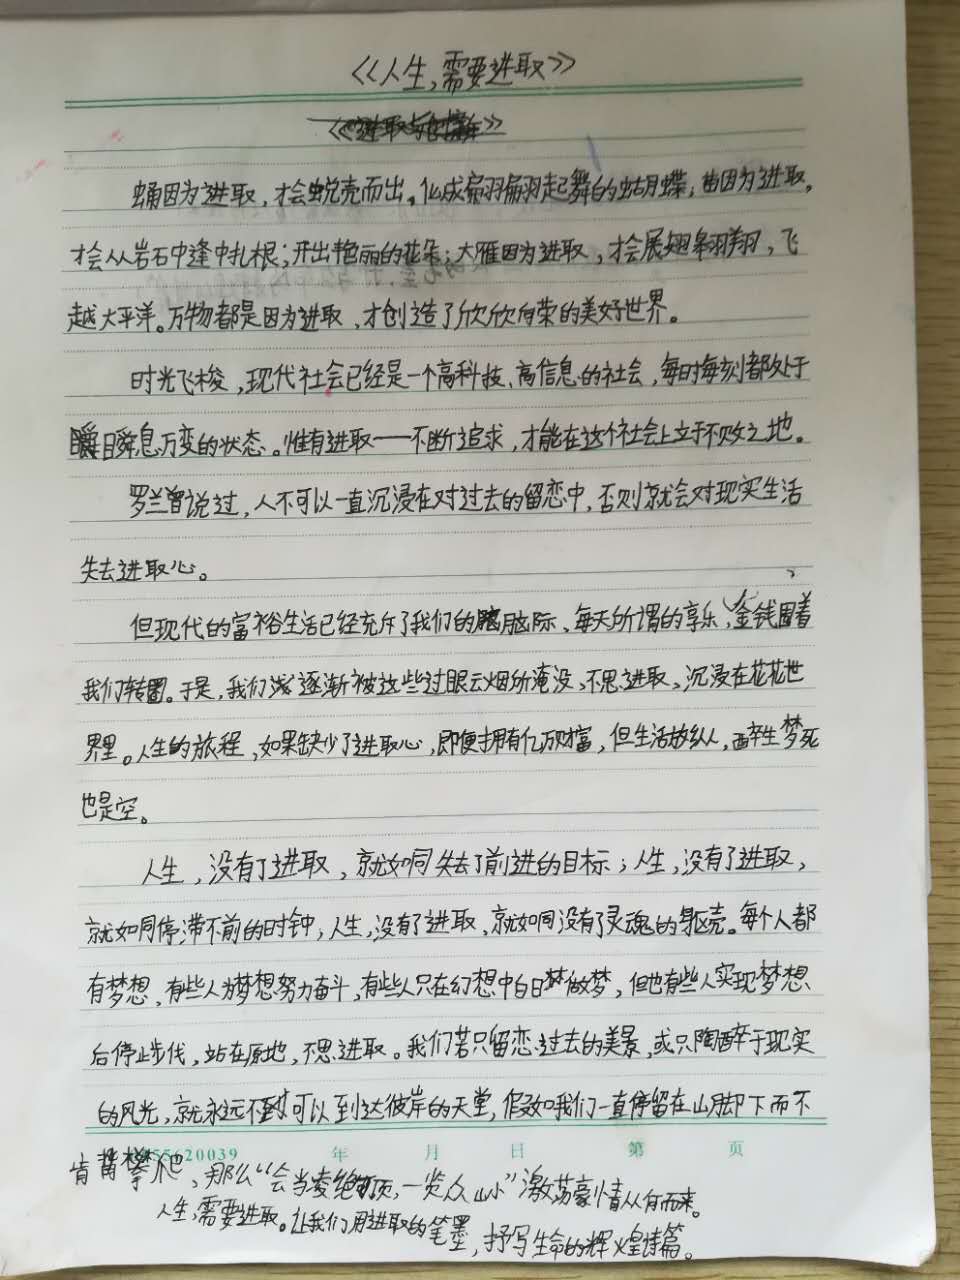 《人生,需要进取》
《进取与创新》
蛹因为进取,才会蜕壳而出。化成翩翩起舞的蝴蝶;苗因为进取,
才会从岩石中逢中扎根;开出艳丽的花朵;大雁因为进取,才会展翅翱翔,飞
越太平洋。万物都是因为进取,才创造了欣欣向荣的美好世界。
时光飞梭,现代社会已经是一个高科技、高信息的社会,每时每刻都处于
瞬息万变的状态。惟有进取——不断追求,才能在这个社会上立于不败之地。
罗兰曾说过,人不可以一直沉浸在对过去的留恋中,否则就会对现实生活
失去进取心。
但现代的富裕生活已经充斥了我们的脑际、每天所谓的享乐、金钱围着
我们转圈。于是,我们逐渐被这些过眼云烟所淹没、不思进取、沉浸在花花世
界里。人生的旅程,如果缺少了进取心,即便拥有亿万财富,但生活放纵,醉生梦死
也是空。
人生,没有了进取,就如同失去了前进的目标;人生,没有了进取,
就如同停滞不前的时钟;人生,没有了进取、就如同没有了灵魂的躯壳。每个人都
有梦想,有些人为梦想努力奋斗,有些人只在幻想中白日做梦,但也有些人实现梦想
后停止步伐,站在原地,不思进取。我们若只留恋过去的美景,或只陶醉于现实
的风光,就永远不可以到达彼岸的天堂,假如我们一直停留在山脚下而不
55620039 年 月 日 第 页
肯攀爬、那么“会当凌绝顶,一览众山小”激荡豪情从何而来。
人生,需要进取。让我们用进取的笔墨,抒写生命的辉煌诗篇。